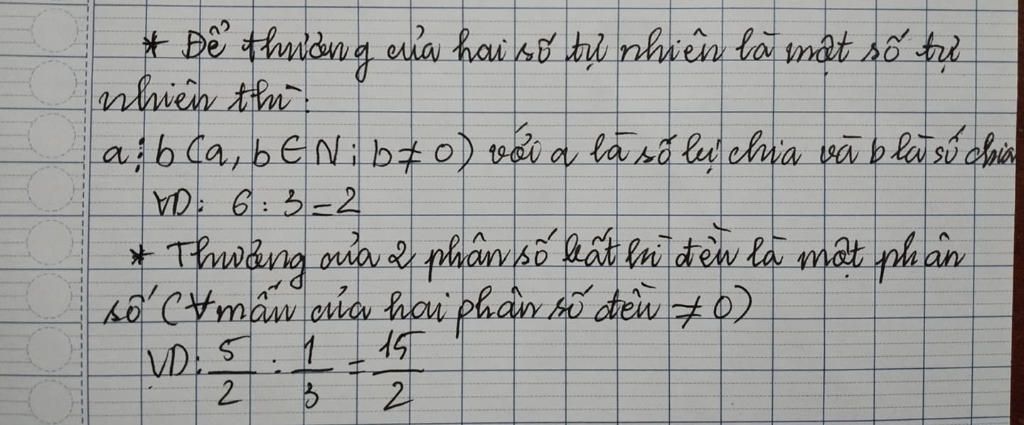 * Để thương của hai số tự nhiên là một số tự
nhiên thì:
a : b (a, b ∈ N ; b ≠ 0) với a là số bị chia và b là số chia
VD: 6 : 3 = 2
* Thương của 2 phân số bất kì đều là một phân
số (∀ mẫu của hai phân số đều ≠ 0)
VD: 5/2 : 1/3 = 15/2